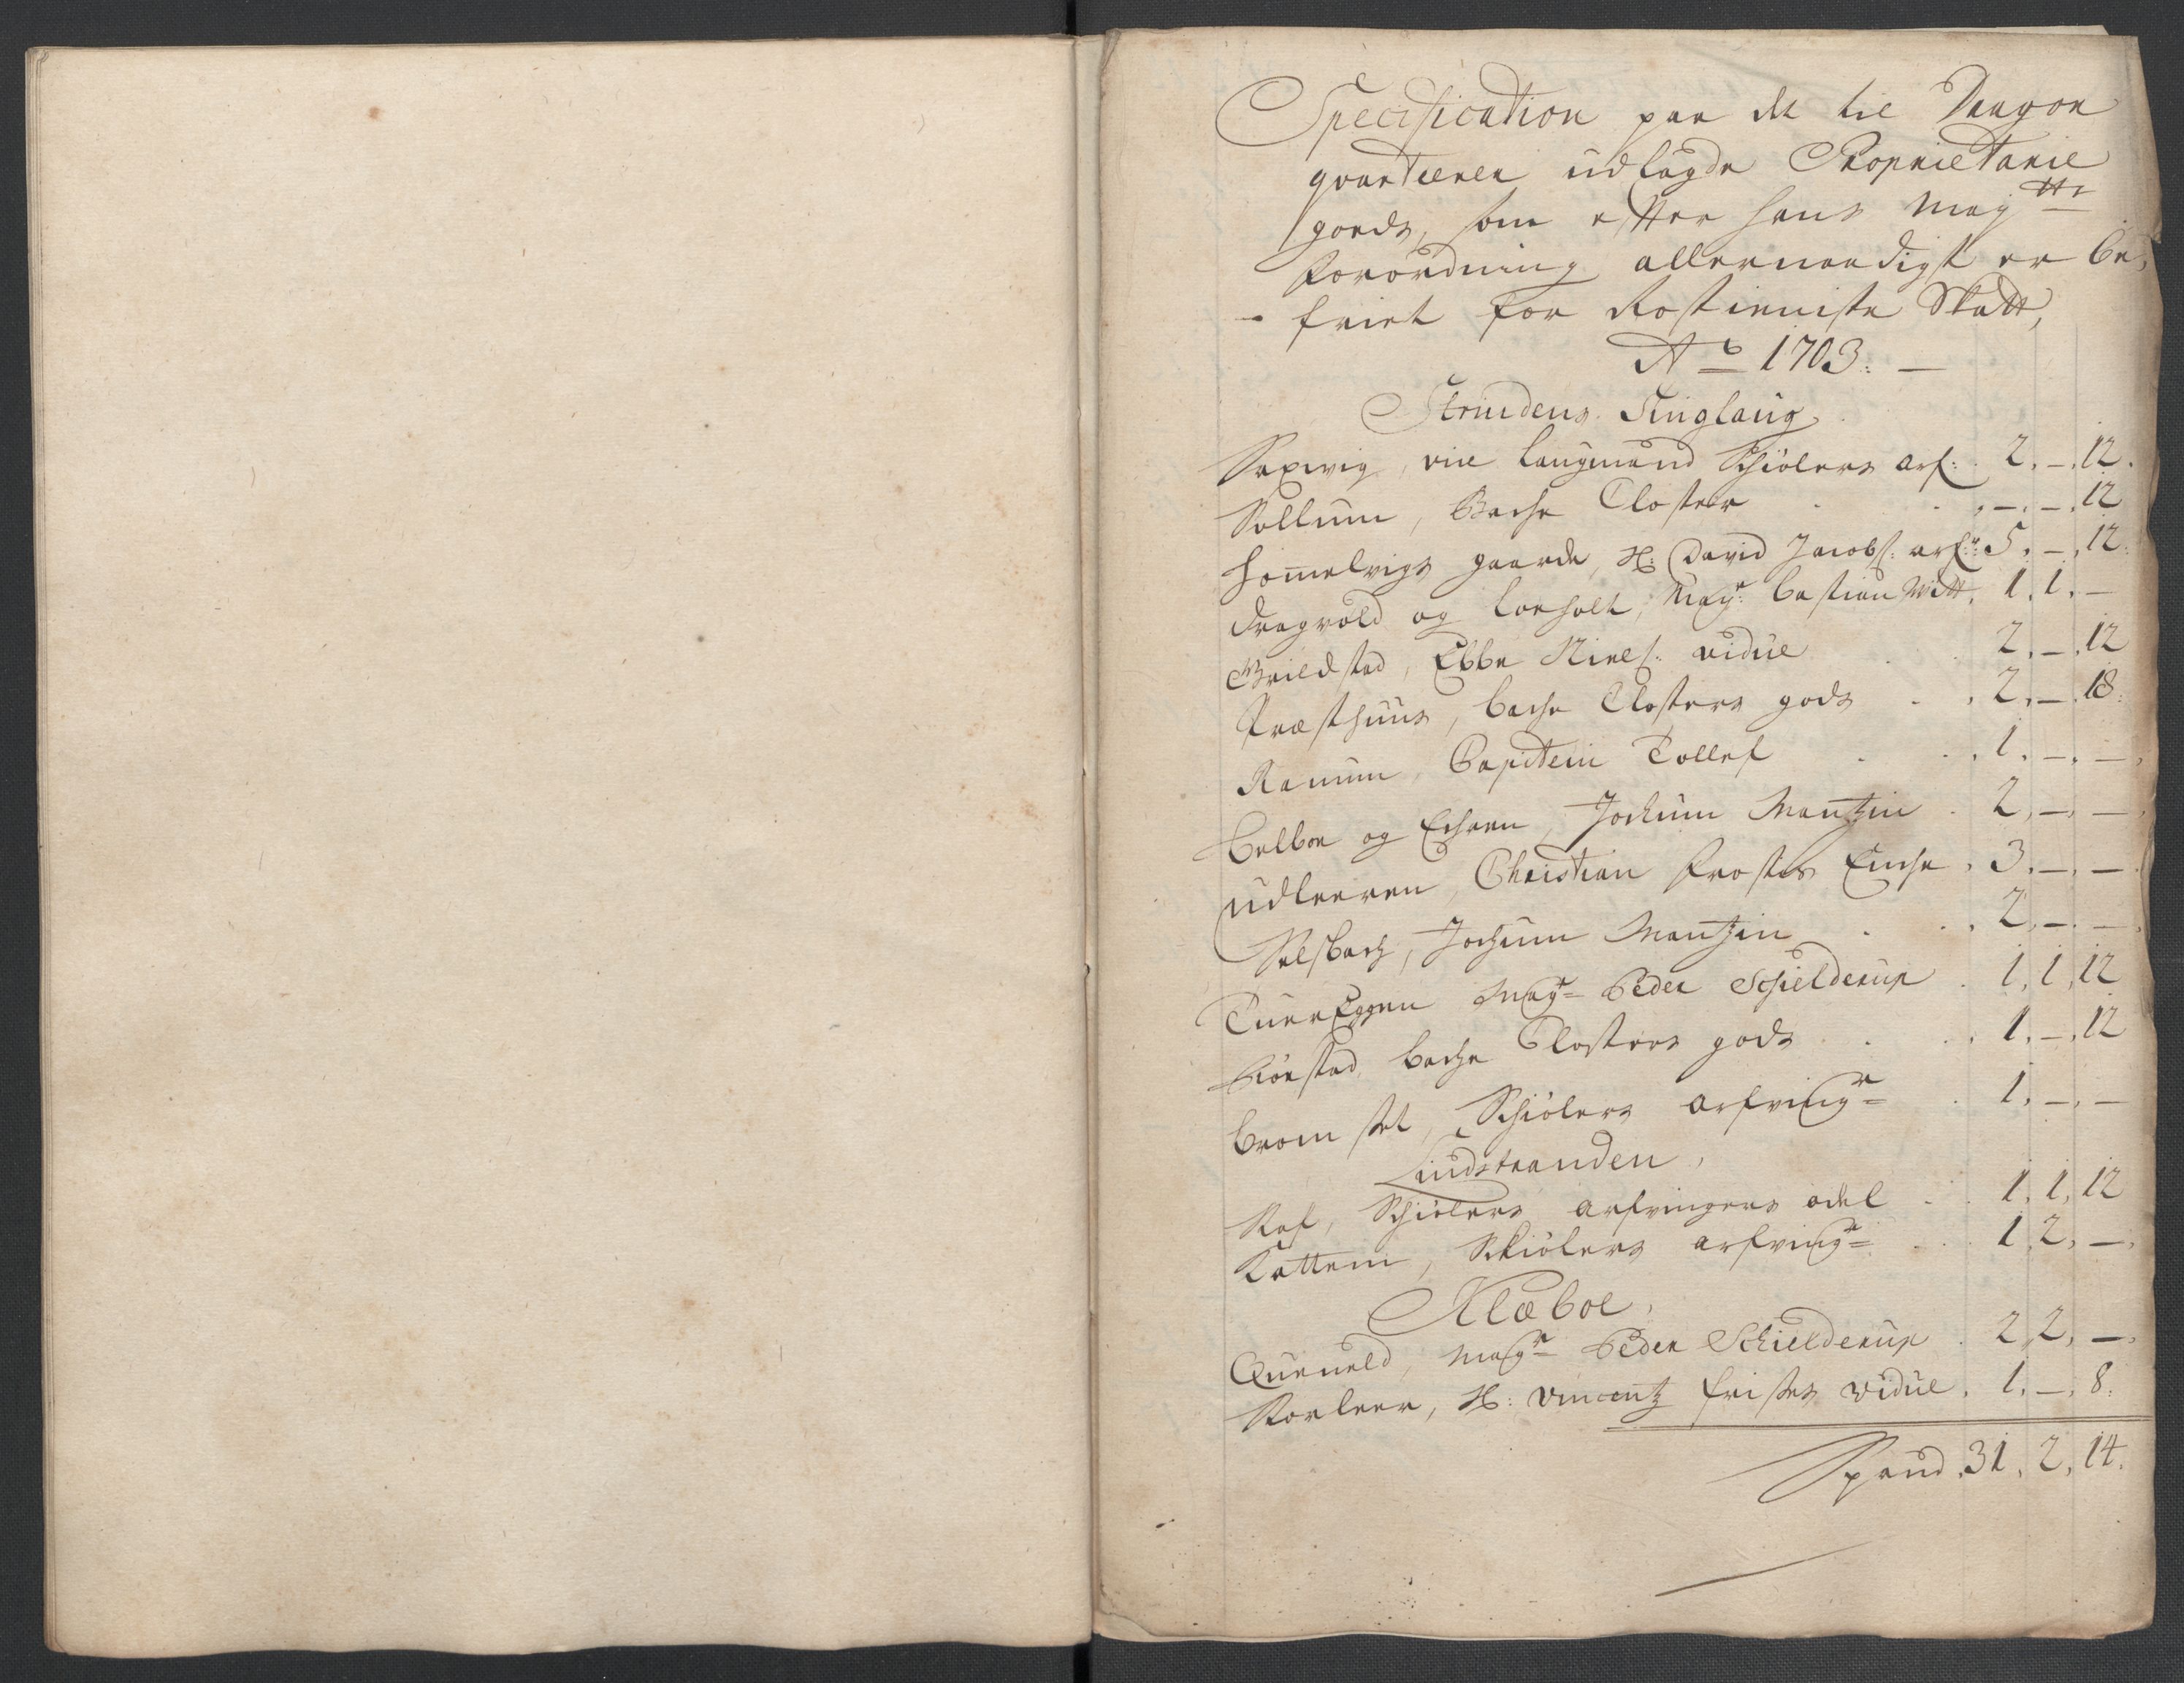 Specification paa det til Dragon
qvarteren udlagde Proprietarie
goeds, som efter hans Maytts
forordning allernaadigst er be,
friet for Rostieniste Skatt,
Ao 1703:
Strindens Tinglaug
Saxwig, viie laugmand Schiølers arf: 2. – 12.
Sollum, Bache Closter – – 12
Homelvigs gaarde, H: David Jacobs: arf: 5. – 12.
Dragvold og Loeholt, Mayr: Bastian Witt. 1. 1. –
Grildstad, Ebbe Niels: vidue 2. – 12
Præsthuus, bache Closters gods 2. – 18.
Ranum, Capitein Tollef 1. – –
Belboe og Echren, Jochum Mantzin 2. – –
Udleeren, Christian Frostes Enche. 3. – –
Selsbach, Jochum Mantzin 2. – –
Tuereggen Mayr Peder Schielderup 1. 1. 12
Biørstad, bache Closters gods 1. – 12
Bromstet, Schiølers arfvingr 1. – –
Lindstranden,
Rof, Schiølers arfvingers odel 1. 1. 12
Kattem, Schiølers arfvingr 1. 2. –
Klæboe,
Queueld, Mayr Peder Schielderup 2. 2. –
Forleer, H: Vincentz fristes vidue. 1. – 8.
Spand. 31. 2. 14.